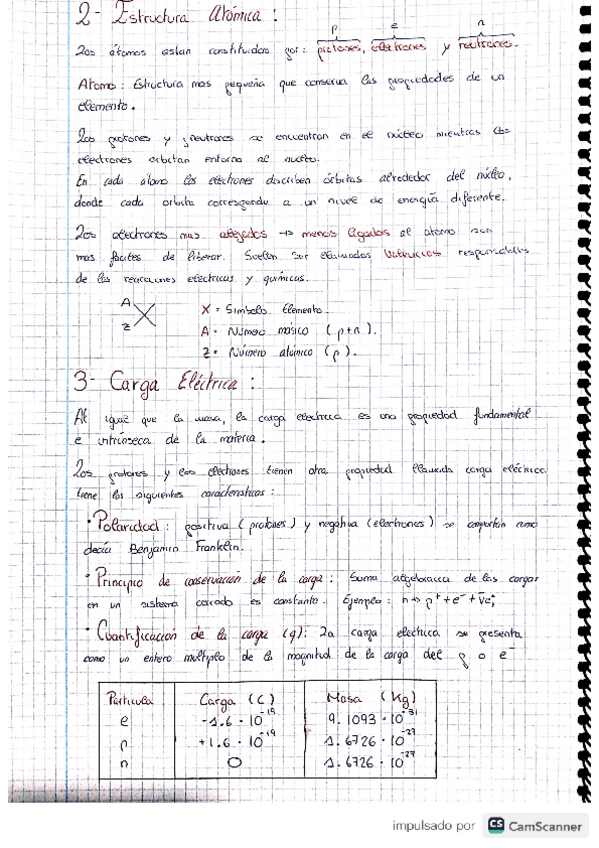 2- Estructura Atómica :
p e n
Los átomos estan constituidos por : protones, electrones y neutrones.
Atomo : Estructura mas pequeña que conserva las propiedades de un
elemento.
Los protones y neutrones se encuentran en el núcleo mientras los
electrones orbitan entorno al nucleo.
En cada atomo los electrones describen órbitas alrededor del núcleo,
donde cada orbita corresponde a un nivel de energía diferente.
Los electrones mas alejados → menos ligados al atomo son
mas faciles de liberar. Suelen ser llamados Valencias responsables
de las reacciones electricas y químicas.
A
X
Z
X = Simbolo Elemento.
A = Número másico (p+n).
Z = Número atómico (p).
3- Carga Eléctrica :
Al igual que la masa, la carga electrica es una propiedad fundamental
e intrinseca de la materia.
Los protones y los electrones tienen otra propiedad llamada carga eléctrica
tiene las siguientes caracteristicas :
· Polaridad : positiva (protones) y negativa (electrones) se comportan como
decía Benjamin Franklin.
· Principio de conservación de la carga : Suma algebraica de las cargas
en un sistema cerrado es constante. Ejemplo : n → p⁺ + e⁻ +
· Cuantificación de la carga (q) : La carga electrica se presenta
como un entero multiplo de la magnitud de la carga del p o e⁻
Particula Carga (C) Masa (Kg)
e -1.6 · 10⁻¹⁹ 9.1093 · 10⁻³¹
p +1.6 · 10⁻¹⁹ 1.6726 · 10⁻²⁷
n 0 1.6726 · 10⁻²⁷
impulsado por CS CamScanner